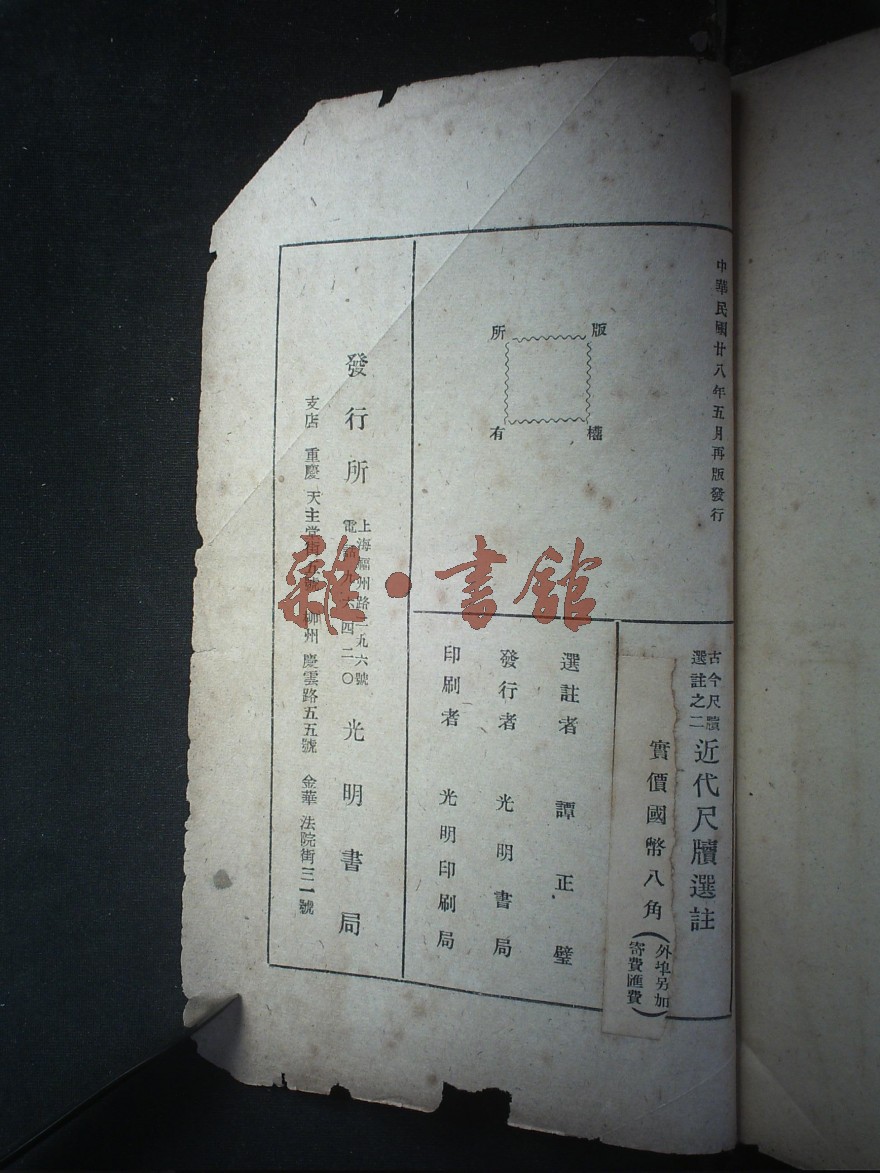 中華民國廿八年五月再版發行
版權所有
古今尺牘
選註之二
近代尺牘選註
實價國幣八角
(外埠另加
寄費匯費)
選註者 譚正璧
發行者 光明書局
印刷者 光明印刷局
發行所
上海福州路二九六號
電話九六四二〇
光明書局
支店 重慶 天主堂街五號 柳州 慶雲路五五號 金華 法院街三一號
雜·書館